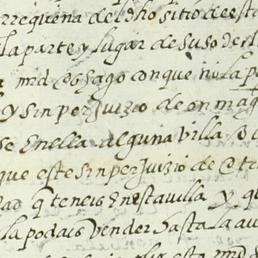 del dho sitio de esta
la parte y lugar de suso de
md os hago con que ni la p
Y sin perJuizio de
se En ella alguna villa o
que este sin perJuizio de
q teneis En esta villa y q
la podais vender hasta la
esta md